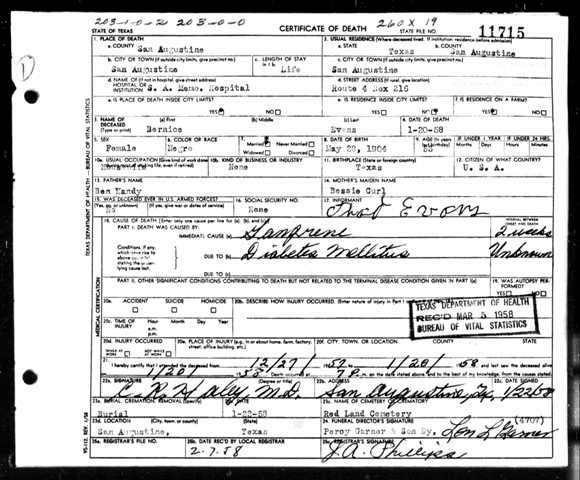 203-1-0-2 203-0-0 260X 19
STATE OF TEXAS CERTIFICATE OF DEATH STATE FILE NO. 11715
1. PLACE OF DEATH 2. USUAL RESIDENCE (Where deceased lived. If institution: residence before admission)
a. COUNTY San Augustine a. STATE Texas b. COUNTY San Augustine
b. CITY OR TOWN (If outside city limits, give precinct no.) c. LENGTH OF STAY c. CITY OR TOWN (If outside city limits, give precinct no.)
San Augustine Life San Augustine
d. NAME OF (If not in hospital, give street address) HOSPITAL OR INSTITUTION S. A. Memo. Hospital d. STREET ADDRESS (If rural, give location) Route 4 Box 216
e. IS PLACE OF DEATH INSIDE CITY LIMITS? YES NO e. IS RESIDENCE INSIDE CITY LIMITS? YES NO f. IS RESIDENCE ON A FARM? YES NO
3. NAME OF DECEASED (Type or print) (a) First Bernice (b) Middle (c) Last Evans 4. DATE OF DEATH 1-20-58
5. SEX Female 6. COLOR OR RACE Negro 7. Married Never Married Widowed Divorced 8. DATE OF BIRTH May 29, 1904 9. AGE 53 IF UNDER 1 YEAR IF UNDER 24 HRS.
10a. USUAL OCCUPATION (Give kind of work done 10b. KIND OF BUSINESS OR INDUSTRY None 11. BIRTHPLACE (State or foreign country) Texas 12. CITIZEN OF WHAT COUNTRY? U. S. A.
13. FATHER'S NAME Ben Handy 14. MOTHER'S MAIDEN NAME Bessie Curl
15. WAS DECEASED EVER IN U.S. ARMED FORCES? (Yes, no, or unknown) (If yes, give war or dates of service) No 16. SOCIAL SECURITY NO. None 17. INFORMANT Evans
18. CAUSE OF DEATH (Enter only one cause per line for (a), (b), and (c).) INTERVAL BETWEEN ONSET AND DEATH
PART I. DEATH WAS CAUSED BY: IMMEDIATE CAUSE (a) Gangrene 2 weeks
DUE TO (b) Diabetes Mellitus Unknown
DUE TO (c)
PART II. OTHER SIGNIFICANT CONDITIONS CONTRIBUTING TO DEATH BUT NOT RELATED TO THE TERMINAL DISEASE CONDITION GIVEN IN PART I(a) 19. WAS AUTOPSY PERFORMED? YES NO
20a. ACCIDENT SUICIDE HOMICIDE 20b. DESCRIBE HOW INJURY OCCURRED. (Enter nature of injury in Part I
TEXAS DEPARTMENT OF HEALTH
REC'D MAR 5 1958
BUREAU OF VITAL STATISTICS
20c. TIME OF INJURY Hour Month Day Year a.m. p.m.
20d. INJURY OCCURRED WHILE AT WORK NOT WHILE AT WORK 20e. PLACE OF INJURY (e.g. in or about home, farm, factory, street, office building, etc.) 20f. CITY, TOWN, OR LOCATION COUNTY STATE
21. I hereby certify that I attended the deceased from 12/27 57 1/20 58 and last saw the deceased alive
1/20 Death occurred at m. on the date stated above; and to the best of my knowledge, from the causes stated.
22a. SIGNATURE (Degree or title) C. R. Haley M.D. 22b. ADDRESS San Augustine, Tx. 22c. DATE SIGNED 1/22/58
23a. BURIAL, CREMATION, REMOVAL (Specify) Burial 23b. DATE 1-22-58 23c. NAME OF CEMETERY OR CREMATORY Red Land Cemetery
23d. LOCATION (City, town, or county) (State) San Augustine, Texas 24. FUNERAL DIRECTOR'S SIGNATURE (4707) Percy Garner & Son By.
25a. REGISTRAR'S FILE NO. 25b. DATE REC'D BY LOCAL REGISTRAR 2-7-58 25c. REGISTRAR'S SIGNATURE J.A. Phillips
TEXAS DEPARTMENT OF HEALTH — BUREAU OF VITAL STATISTICS
MEDICAL CERTIFICATION
D